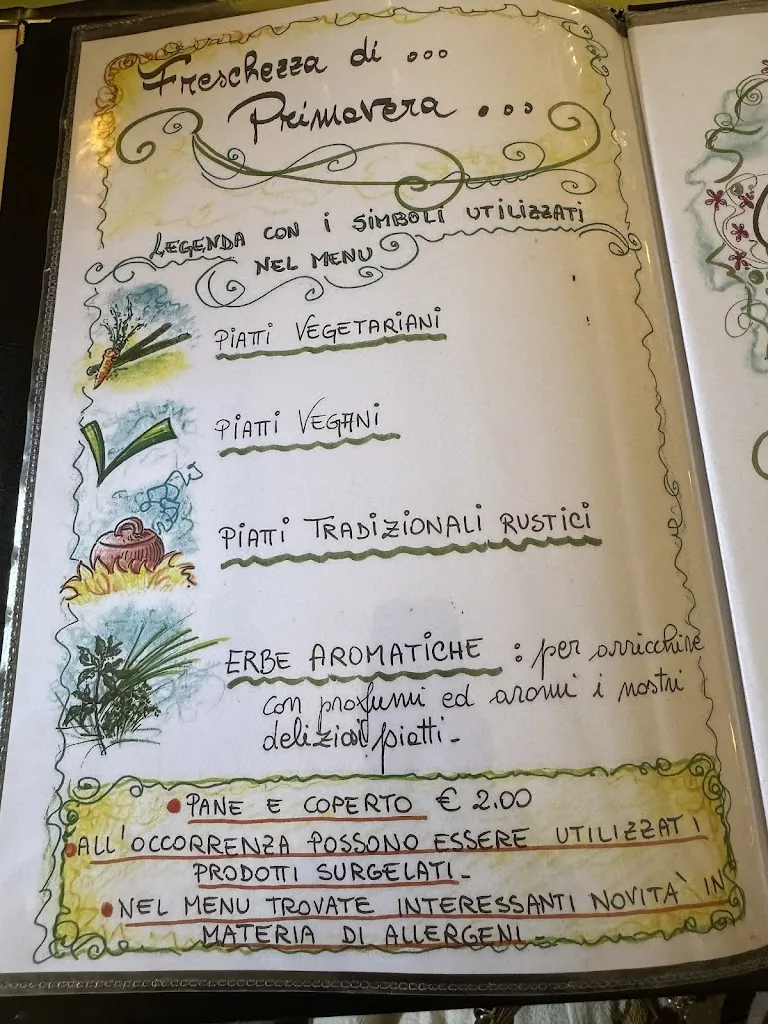 Freschezza di ...
Primavera ...
LEGENDA CON I SIMBOLI UTILIZZATI
NEL MENU
PIATTI VEGETARIANI
PIATTI VEGANI
PIATTI TRADIZIONALI RUSTICI
ERBE AROMATICHE : per arricchire
con profumi ed aromi i nostri
deliziosi piatti-
• PANE E COPERTO € 2.00
• ALL'OCCORRENZA POSSONO ESSERE UTILIZZATI
PRODOTTI SURGELATI-
• NEL MENU TROVATE INTERESSANTI NOVITÀ IN
MATERIA DI ALLERGENI